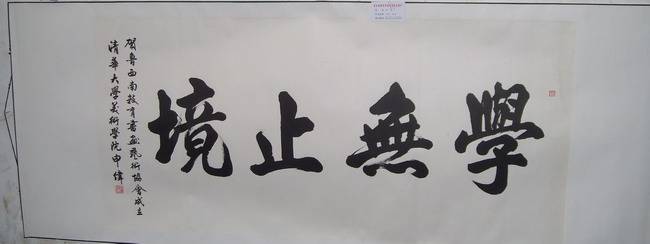 學無止境
賀魯西南教育書畫藝術協會成立
清華大學美術學院申偉